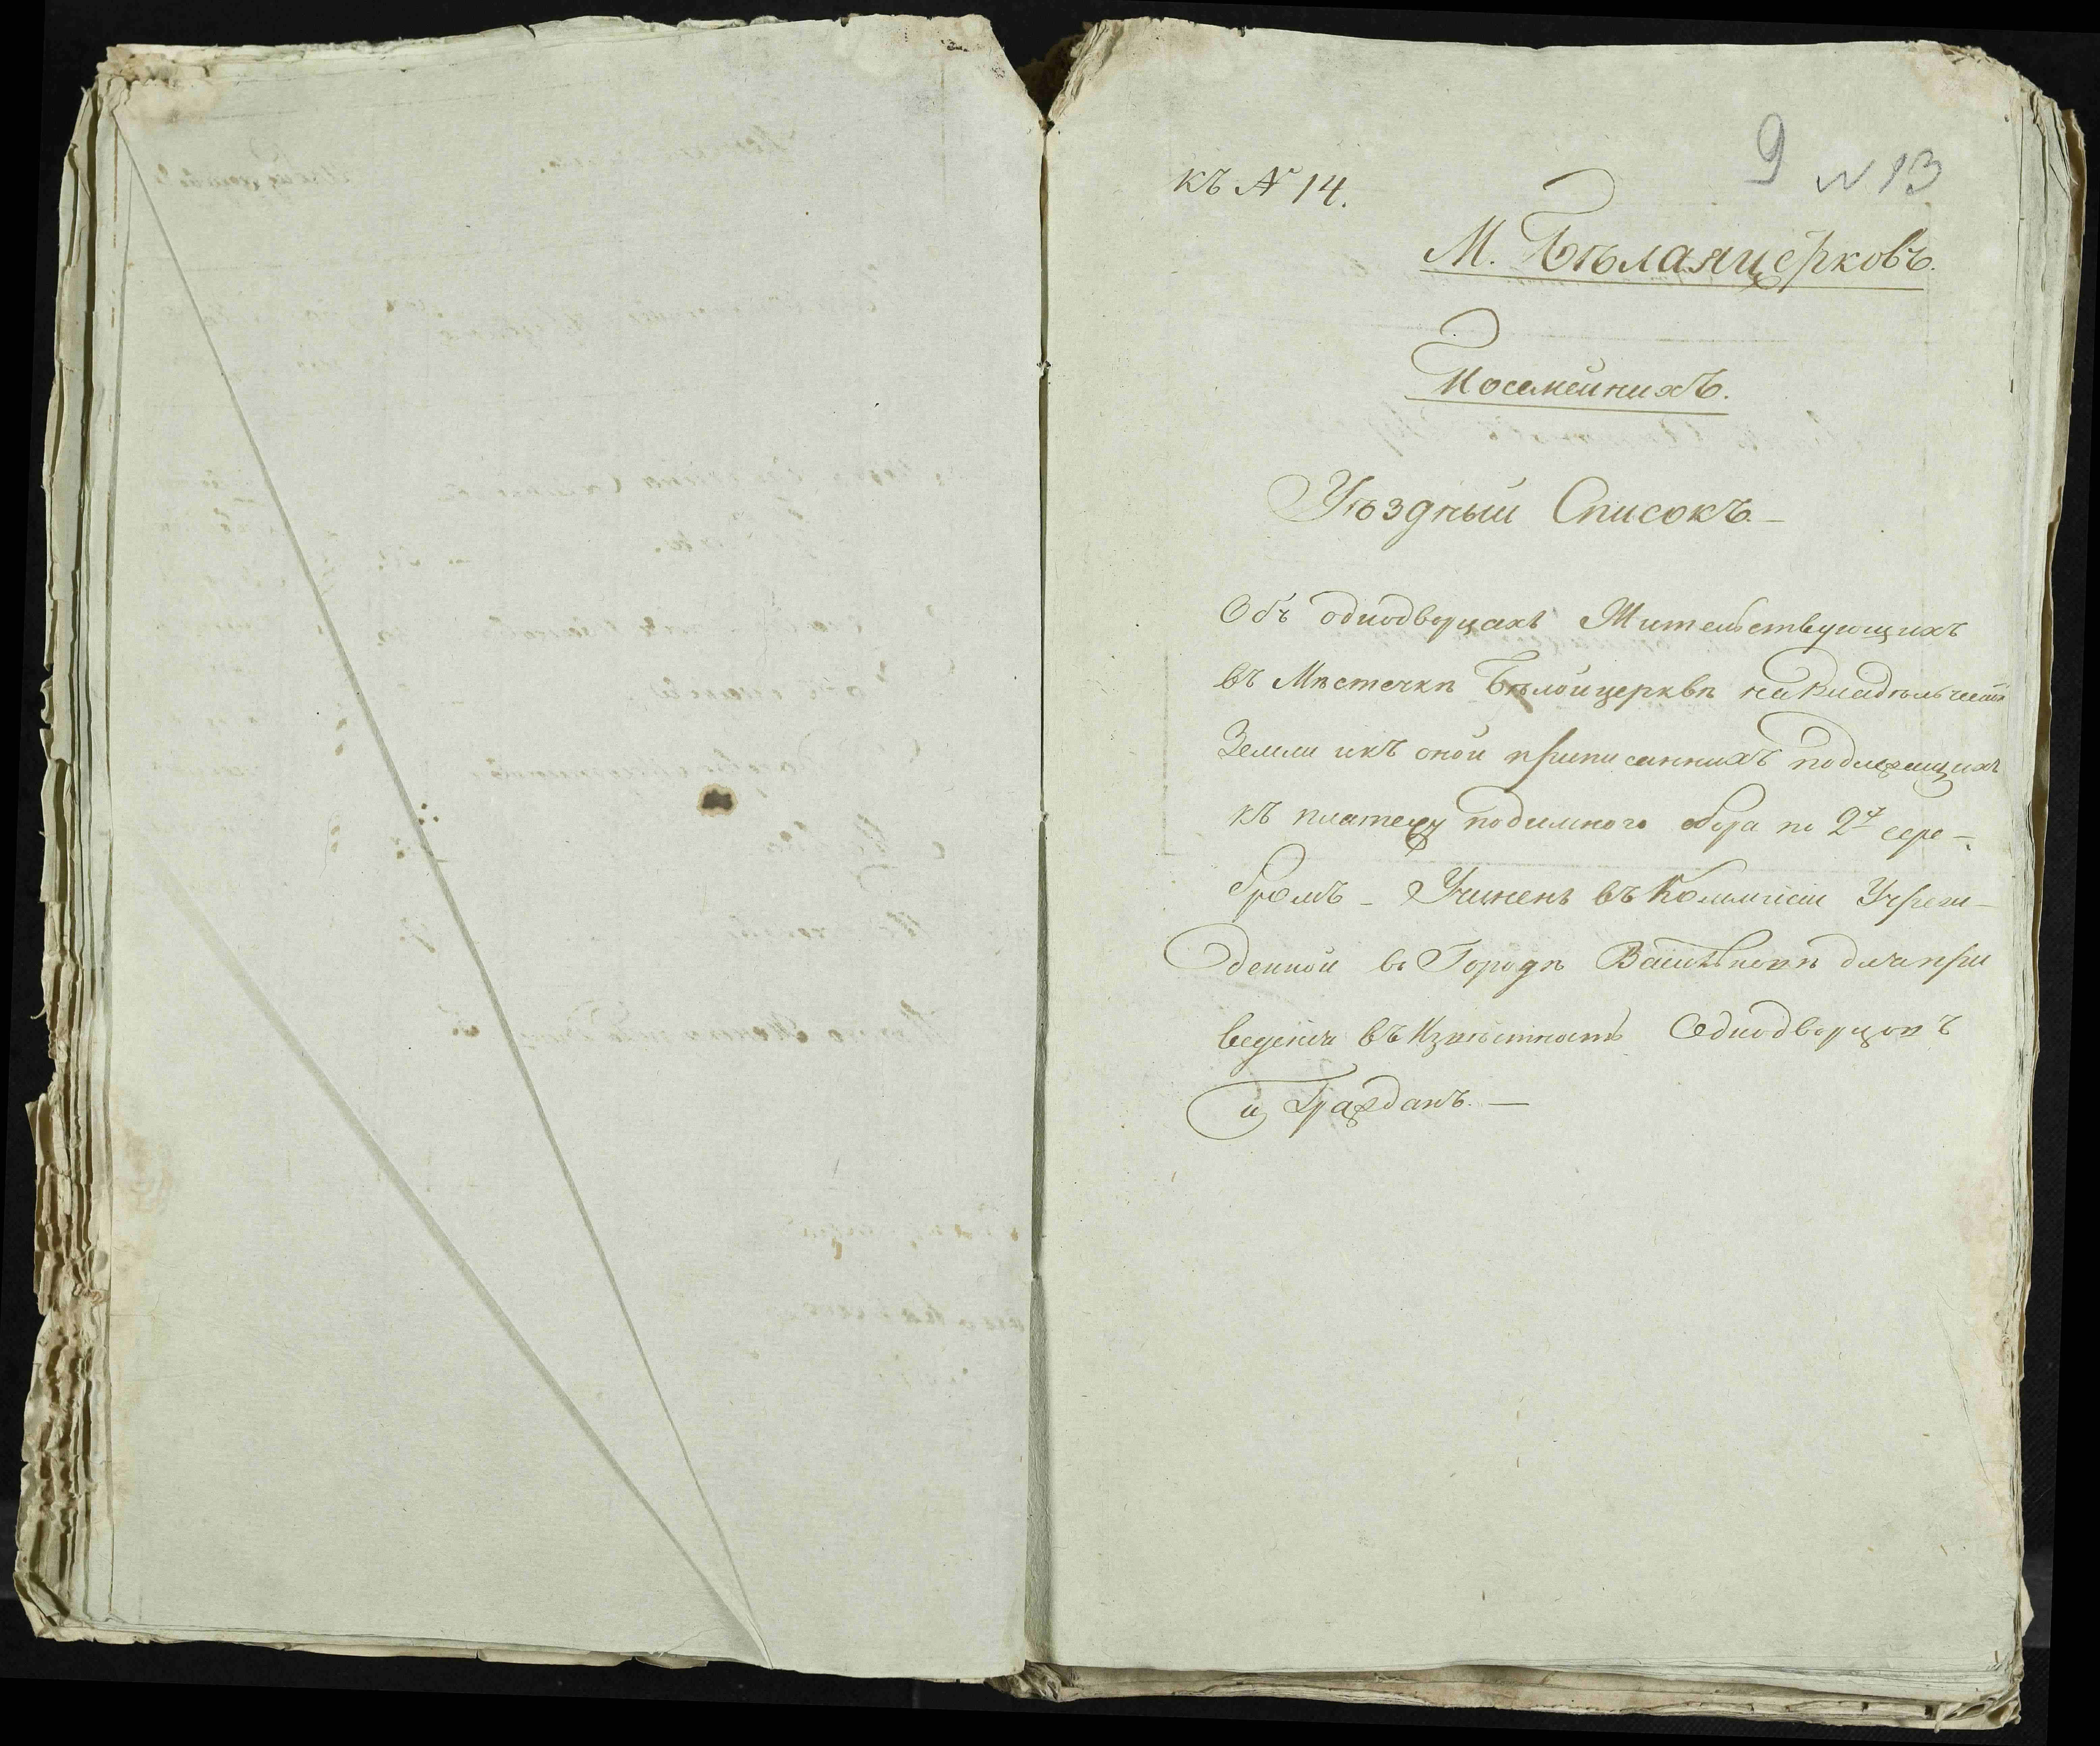 9 N 13
къ № 14.
М. Бѣлаяцерковъ.
Посемейнихъ.
Уѣздный Списокъ —
Объ однодворцахъ Жительствующихъ
въ Мѣстечкѣ Бѣлойцерквѣ на владѣльческой
Земли и къ оной приписаннихъ подлежащихъ
къ платежу подимного сбора по 2 сере-
бромъ — Учиненъ въ Коммисіи Учреж-
денной въ Городѣ Васильковѣ для при
веденія въ Извѣстность Однодворцовъ
и Гражданъ. —